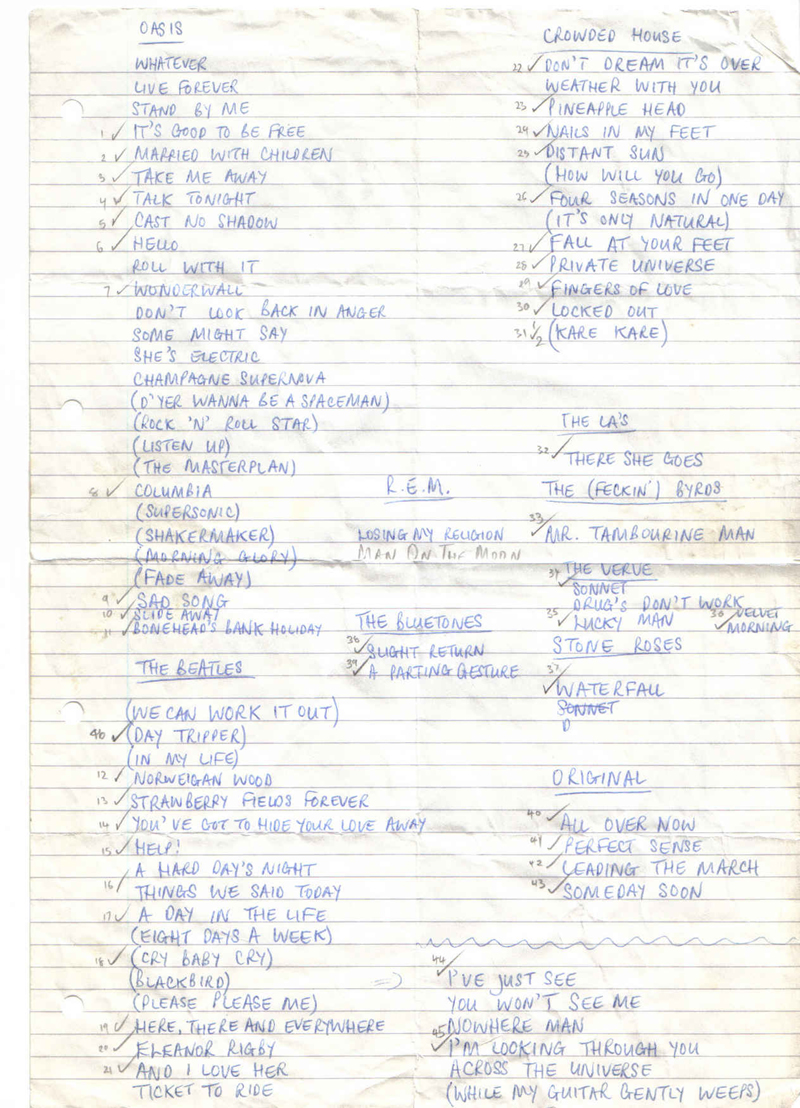 OASIS
WHATEVER
LIVE FOREVER
STAND BY ME
1 ✓ IT'S GOOD TO BE FREE
2 ✓ MARRIED WITH CHILDREN
3 ✓ TAKE ME AWAY
4 ✓ TALK TONIGHT
5 ✓ CAST NO SHADOW
6 ✓ HELLO
ROLL WITH IT
7 ✓ WONDERWALL
DON'T LOOK BACK IN ANGER
SOME MIGHT SAY
SHE'S ELECTRIC
CHAMPAGNE SUPERNOVA
(D'YER WANNA BE A SPACEMAN)
(ROCK 'N' ROLL STAR)
(LISTEN UP)
(THE MASTERPLAN)
8 ✓ COLUMBIA
(SUPERSONIC)
(SHAKERMAKER)
(MORNING GLORY)
(FADE AWAY)
9 ✓ SAD SONG
10 ✓ SLIDE AWAY
11 ✓ BONEHEAD'S BANK HOLIDAY
THE BEATLES
(WE CAN WORK IT OUT)
46 ✓ (DAY TRIPPER)
(IN MY LIFE)
12 ✓ NORWEIGAN WOOD
13 ✓ STRAWBERRY FIELDS FOREVER
14 ✓ YOU'VE GOT TO HIDE YOUR LOVE AWAY
15 ✓ HELP!
A HARD DAY'S NIGHT
16 / THINGS WE SAID TODAY
17 ✓ A DAY IN THE LIFE
(EIGHT DAYS A WEEK)
18 ✓ (CRY BABY CRY)
(BLACKBIRD) =>
(PLEASE PLEASE ME)
19 ✓ HERE, THERE AND EVERYWHERE
20 ✓ ELEANOR RIGBY
21 ✓ AND I LOVE HER
TICKET TO RIDE
R.E.M.
LOSING MY RELIGION
MAN ON THE MOON
THE BLUETONES
38 ✓ SLIGHT RETURN
39 ✓ A PARTING GESTURE
CROWDED HOUSE
22 ✓ DON'T DREAM IT'S OVER
WEATHER WITH YOU
23 ✓ PINEAPPLE HEAD
24 ✓ NAILS IN MY FEET
25 ✓ DISTANT SUN
(HOW WILL YOU GO)
26 ✓ FOUR SEASONS IN ONE DAY
(IT'S ONLY NATURAL)
27 ✓ FALL AT YOUR FEET
28 ✓ PRIVATE UNIVERSE
29 ✓ FINGERS OF LOVE
30 ✓ LOCKED OUT
31 ½ (KARE KARE)
THE LA'S
32 ✓ THERE SHE GOES
THE (FECKIN') BYRDS
33 ✓ MR. TAMBOURINE MAN
THE VERVE
34 ✓ SONNET
DRUG'S DON'T WORK
35 ✓ LUCKY MAN
36 ✓ VELVET
MORNING
STONE ROSES
37 ✓ WATERFALL
SONNET
D
ORIGINAL
40 ✓ ALL OVER NOW
41 ✓ PERFECT SENSE
42 ✓ LEADING THE MARCH
43 ✓ SOMEDAY SOON
44 ✓ I'VE JUST SEE
YOU WON'T SEE ME
NOWHERE MAN
45 ✓ I'M LOOKING THROUGH YOU
ACROSS THE UNIVERSE
(WHILE MY GUITAR GENTLY WEEPS)